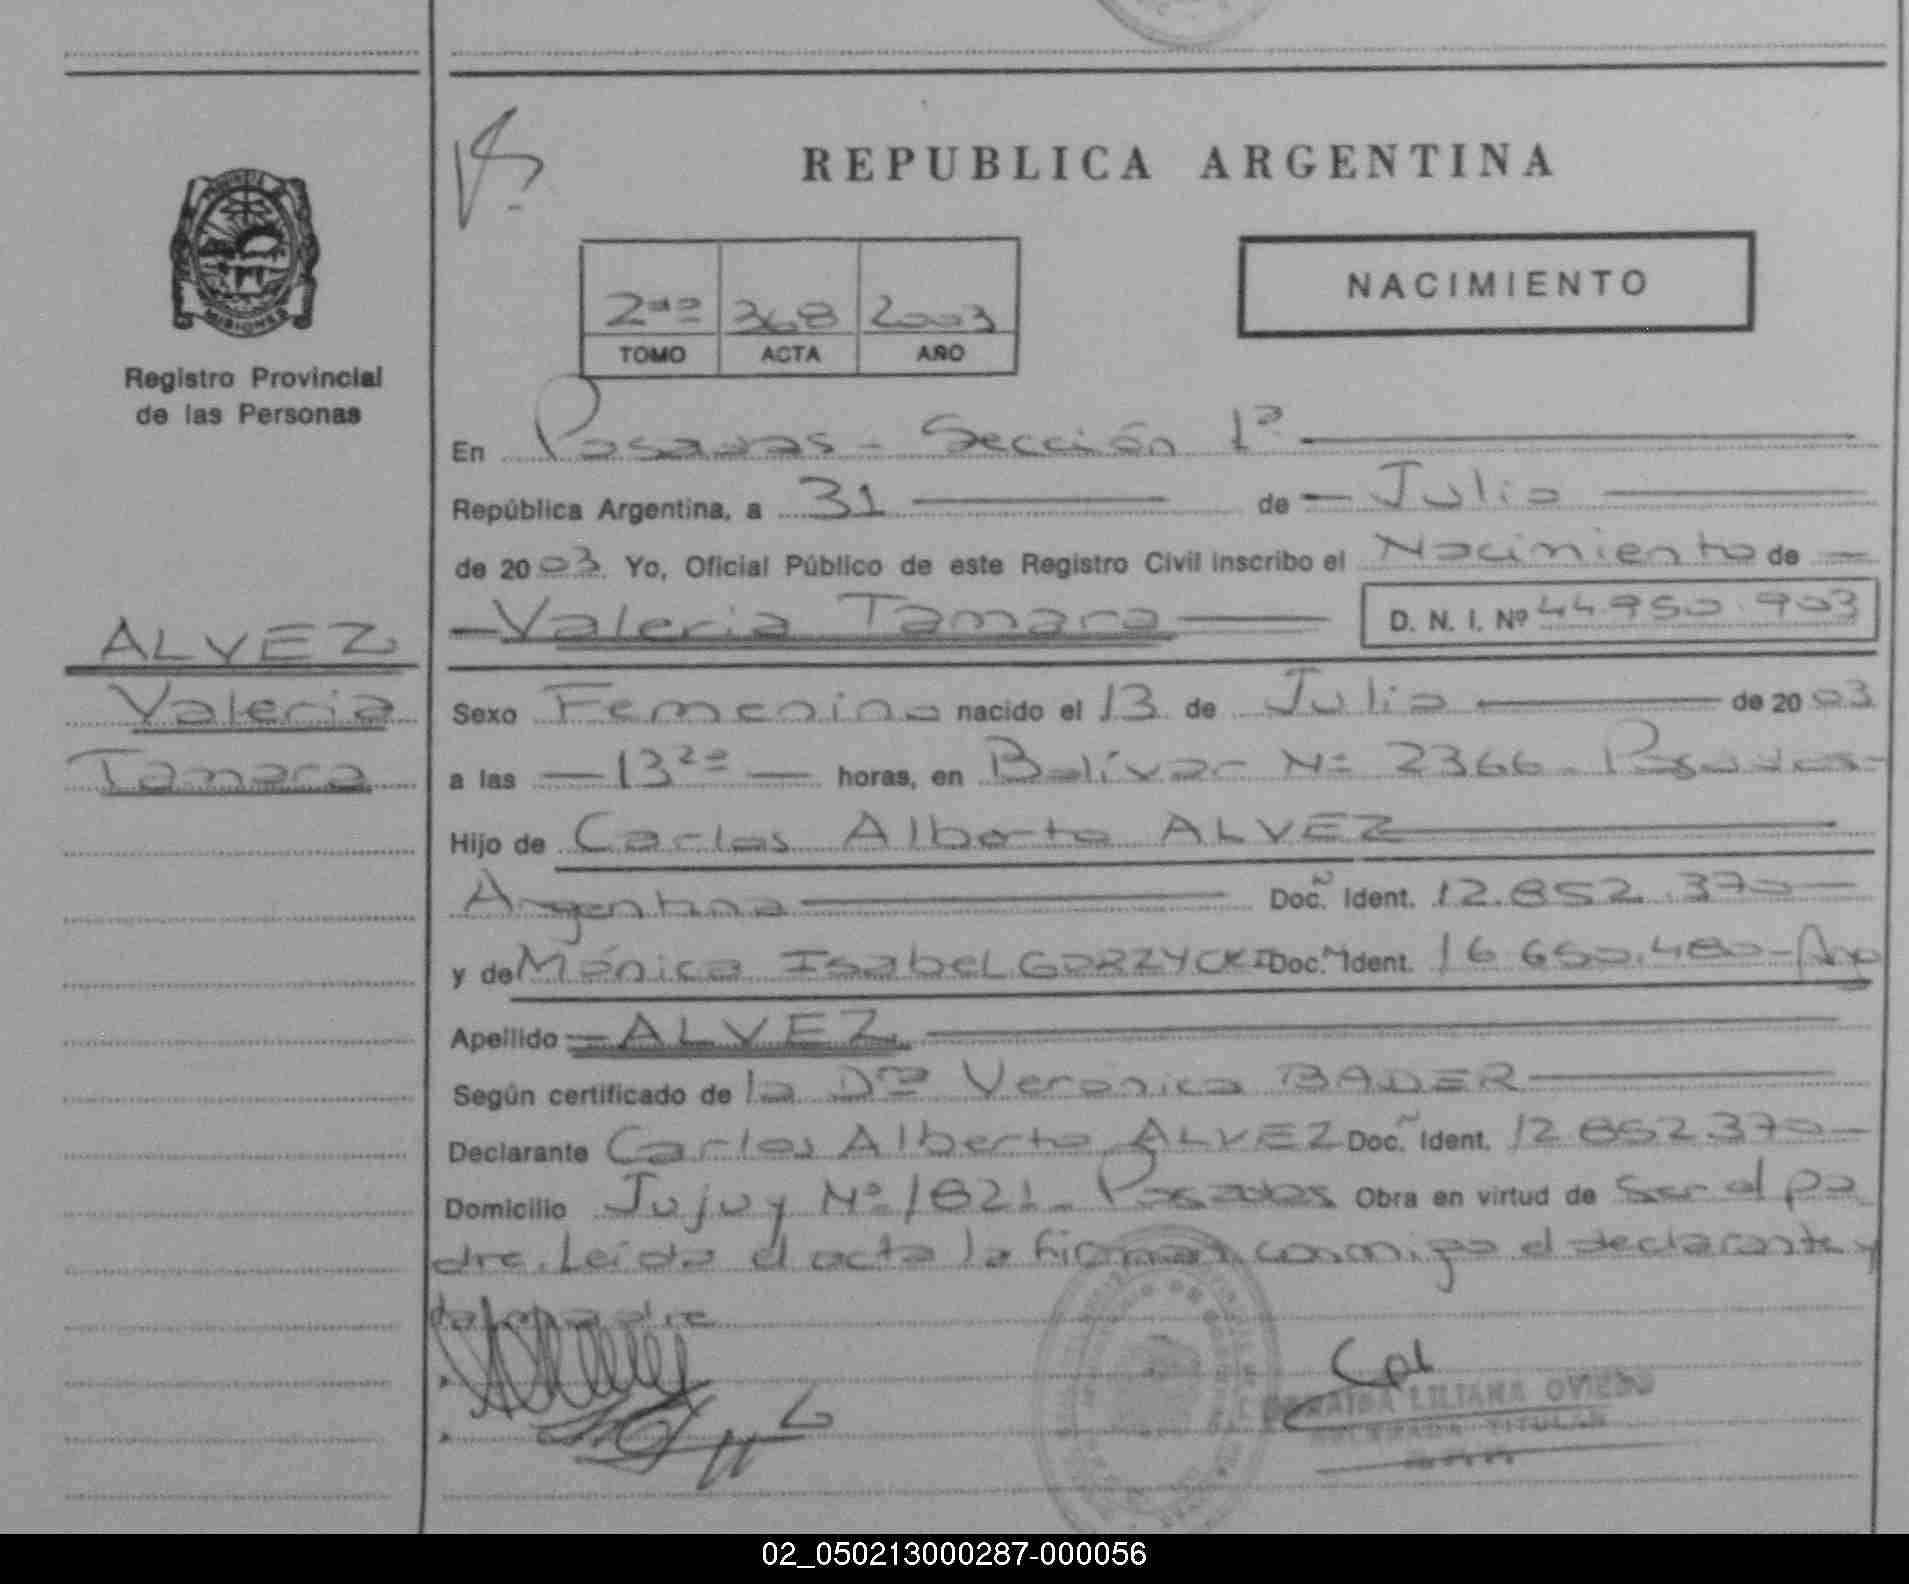 REPUBLICA ARGENTINA
MISIONES
Registro Provincial
de las Personas
2do 368 2003
TOMO ACTA AÑO
NACIMIENTO
En Posadas - Sección 1ª
República Argentina, a 31 de Julio
de 2003 Yo, Oficial Público de este Registro Civil inscribo el Nacimiento de
Valeria Tamara D. N. I. Nº 44.950.903
ALVEZ
Valeria
Tamara
Sexo Femenino nacido el 13 de Julio de 2003
a las 13 horas, en Bolívar Nº 2366 - Posadas -
Hijo de Carlos Alberto ALVEZ
Argentino Doc. Ident. 12.852.370
y de Mónica Isabel GORZYCKI Doc. Ident. 16.650.480 - Arg
Apellido ALVEZ
Según certificado de la Dra Verónica BADER
Declarante Carlos Alberto ALVEZ Doc. Ident. 12.852.370
Domicilio Jujuy Nº 1821 - Posadas Obra en virtud de Ser el pa
dre. Leída el acta la firman conmigo el declarante y
la madre
LILIANA OVIEDO
TITULAR
02_050213000287-000056